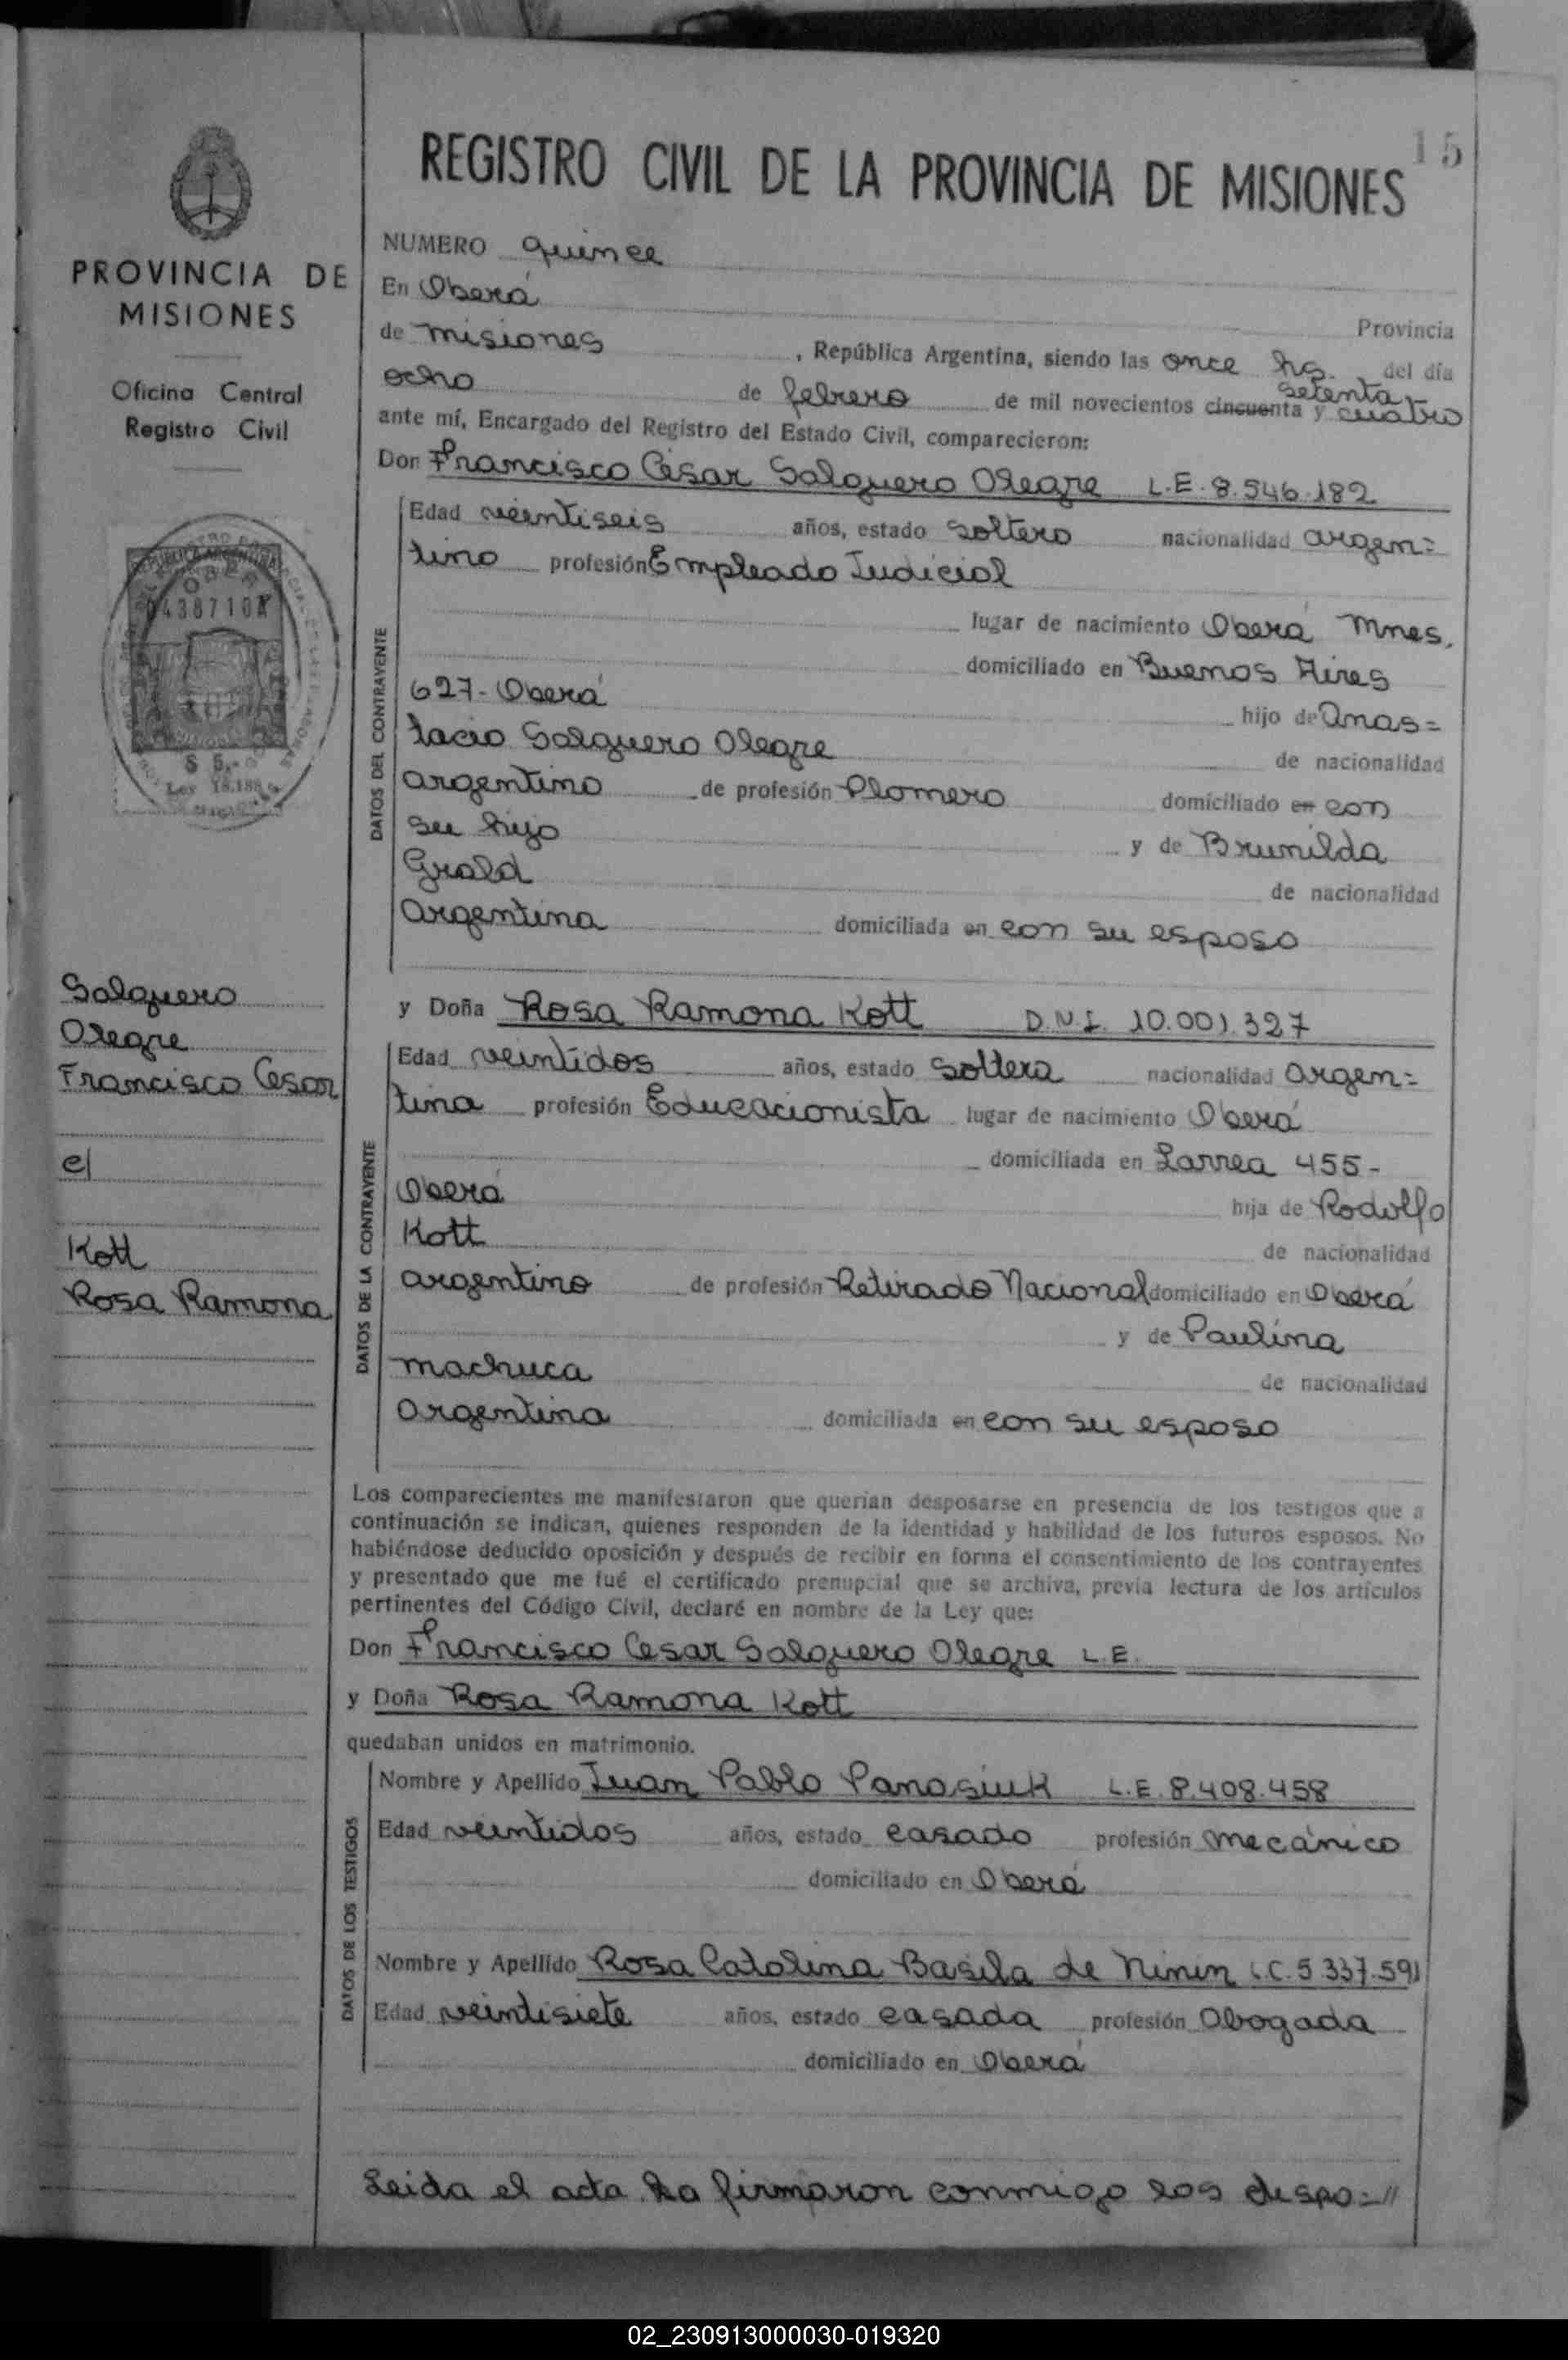 15
REGISTRO CIVIL DE LA PROVINCIA DE MISIONES
PROVINCIA DE
MISIONES
Oficina Central
Registro Civil
REPUBLICA ARGENTINA
OBERA
$ 5.-
Ley 18.188
Salguero
Olegre
Francisco Cesar
c/
Kott
Rosa Ramona
NUMERO quince
En Oberá Provincia
de misiones, República Argentina, siendo las once hs. del día
ocho de febrero de mil novecientos cincuenta setenta y cuatro
ante mí, Encargado del Registro del Estado Civil, comparecieron:
Don Francisco César Salguero Olegre L.E. 8.546.182
DATOS DEL CONTRAYENTE
Edad veintiseis años, estado soltero nacionalidad argen=
tino profesión Empleado Judicial
lugar de nacimiento Oberá Mnes.
domiciliado en Buenos Aires
627- Oberá hijo de Anas=
tacio Salguero Olegre de nacionalidad
argentino de profesión Plomero domiciliado en con
su hijo y de Brunilda
Grald de nacionalidad
Argentina domiciliada en con su esposo
y Doña Rosa Ramona Kott D.N.I. 10.001.327
DATOS DE LA CONTRAYENTE
Edad veintidos años, estado soltera nacionalidad argen=
tina profesión Educacionista lugar de nacimiento Oberá
domiciliada en Larrea 455-
Oberá hija de Rodolfo
Kott de nacionalidad
argentino de profesión Retirado Nacional domiciliado en Oberá
y de Paulina
machuca de nacionalidad
Argentina domiciliada en con su esposo
Los comparecientes me manifestaron que querían desposarse en presencia de los testigos que a
continuación se indican, quienes responden de la identidad y habilidad de los futuros esposos. No
habiéndose deducido oposición y después de recibir en forma el consentimiento de los contrayentes
y presentado que me fué el certificado prenupcial que se archiva, previa lectura de los artículos
pertinentes del Código Civil, declaré en nombre de la Ley que:
Don Francisco Cesar Salguero Olegre L.E.
y Doña Rosa Ramona Kott
quedaban unidos en matrimonio.
DATOS DE LOS TESTIGOS
Nombre y Apellido Juan Pablo Panasiuk L.E. 8.408.458
Edad veintidos años, estado casado profesión mecánico
domiciliado en Oberá
Nombre y Apellido Rosa Catalina Basila de Ninin L.C. 5.337.591
Edad veintisiete años, estado casada profesión Abogada
domiciliado en Oberá
Leida el acta la firmaron conmigo los despo=//
02_230913000030-019320